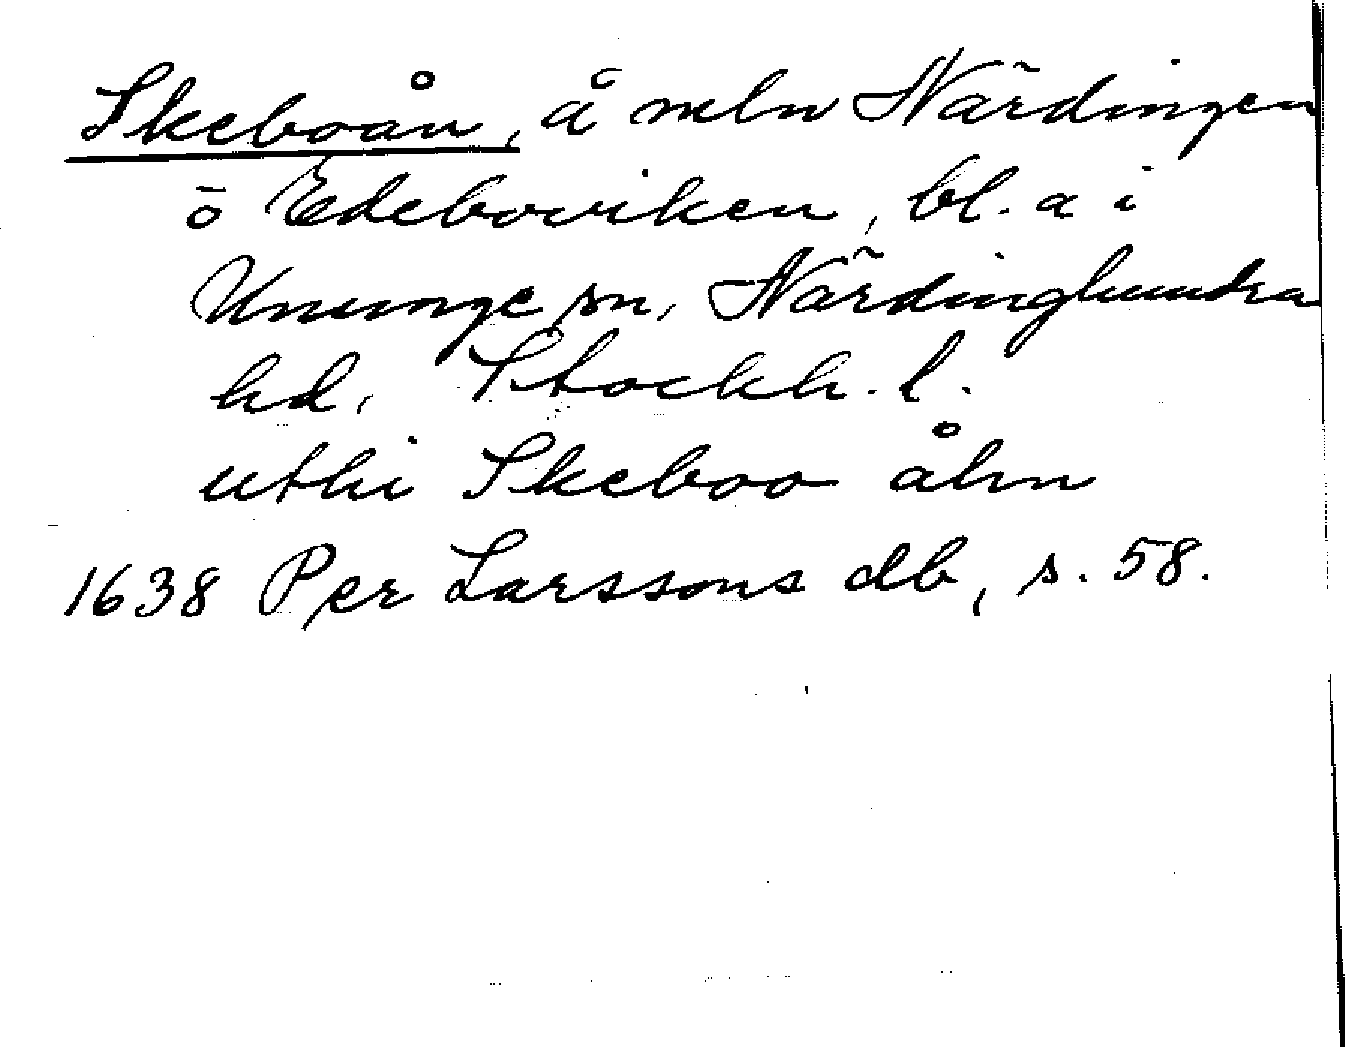 Skeboån, å mln Närdingen
o Edeboviken, bl. a i
Ununge sn, Närdinghundra
hd, Stockh. l.
uthi Skeboo åhn
1638 Per Larssons db, s. 58.